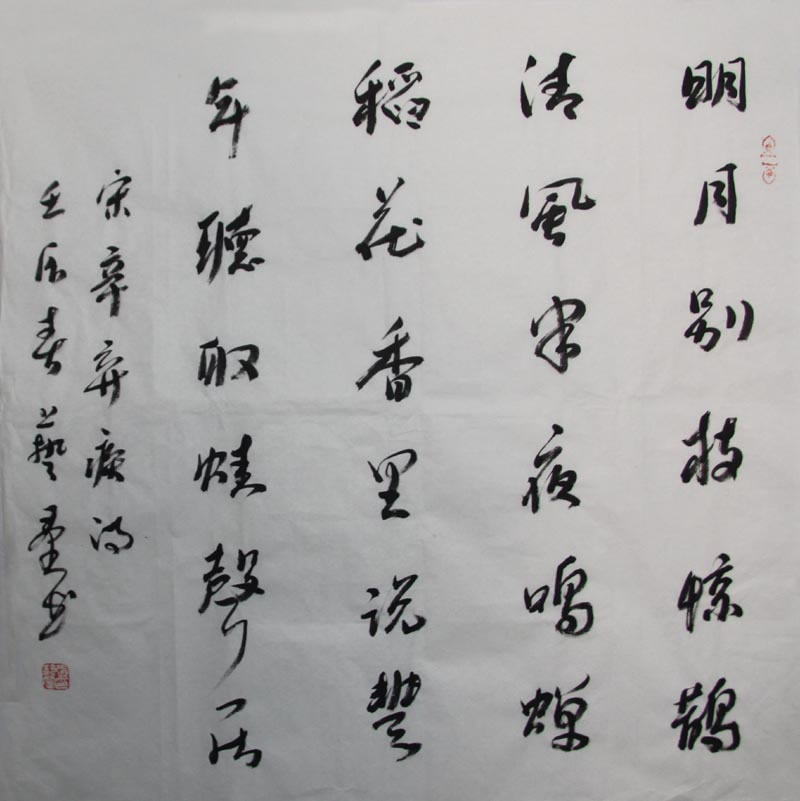 明月别枝惊鵲
清風半夜鳴蝉
稻花香里说豐
年聽取蛙聲一片
宋辛弃疾词
壬辰春